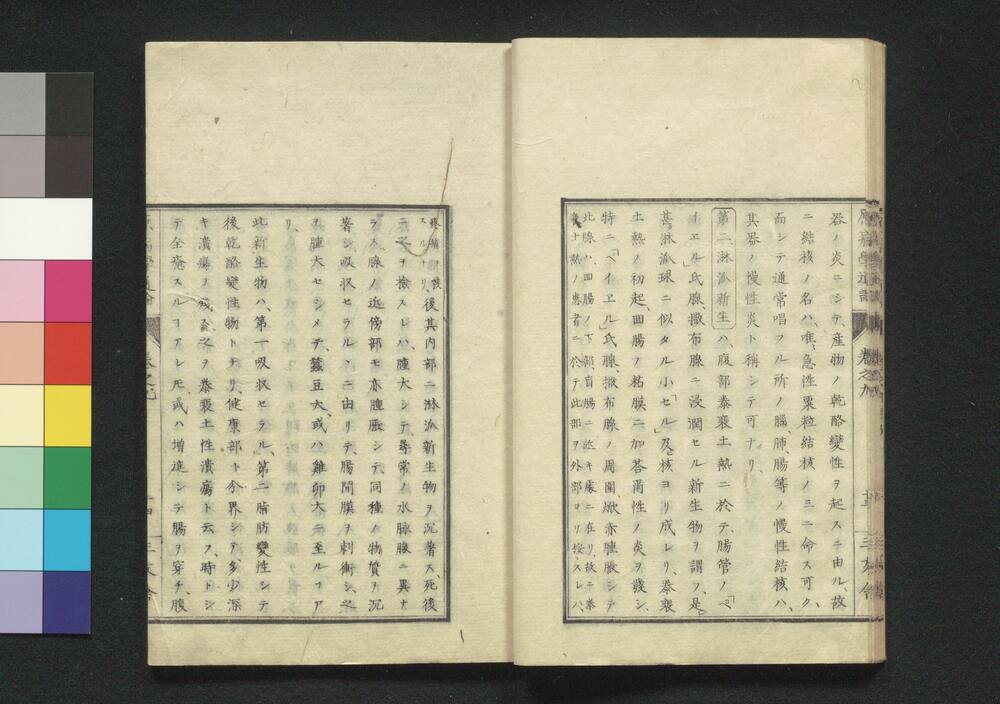 器ノ炎ニシテ、産物ノ乾酪變性ヲ起スニ由ル、故
ニ結核ノ名ハ、唯、急性粟粒結核ノミニ命ス可ク、
而シテ通常唱フル所ノ腦、肺、腸等ノ慢性結核ハ、
其器ノ慢性炎ト稱シテ可ナリ、
第二淋派新生ハ、腹部泰褒土熱ニ於テ、腸管ノ「ペ
イエル」氏腺、撒布腺ニ浸潤セル新生物ヲ謂フ、是
其淋派球ニ似タル小「セル」及ヒ核ヨリ成レリ、泰褒
土熱ノ初起、回腸ノ粘膜ニ加答兒性ノ炎ヲ發シ、
特ニ「ペイエル」氏腺、撒布腺ノ周圍、焮赤腫脹シテ
北腺ハ、回腸ノ下部、盲腸ニ近キ處ニ在リ、故ニ泰
褒土熱ノ患者ニ於テ此部ヲ外部ヨリ按スレハ、
疼痛ヲ發
スルナリ、後其内部ニ淋派新生物ヲ沉著ス、死後
ニ之ヲ撿スレハ、腫大シテ、尋常ノ水脉腺ニ異ナ
ラス、腺ノ近傍部モ亦腫脹シテ、同種ノ物質ヲ沉
著シ、吸收セラルヽニ由リテ、腸間膜ヲ刺衝シ、之
ヲ腫大セシメテ、蠶豆大、或ハ雞卵大ニ至ルコア
リ、
此新生物ハ、第一吸收セラル、第二脂肪變性シテ
後乾酪變性物トナリ、健康部ト分界シテ、多少深
キ潰瘍ヲ殘ス、之ヲ泰褒土性潰瘍ト云フ、時トシ
テ全癒スルコアレ𪜈、或ハ增進シテ腸ヲ穿チ、腹